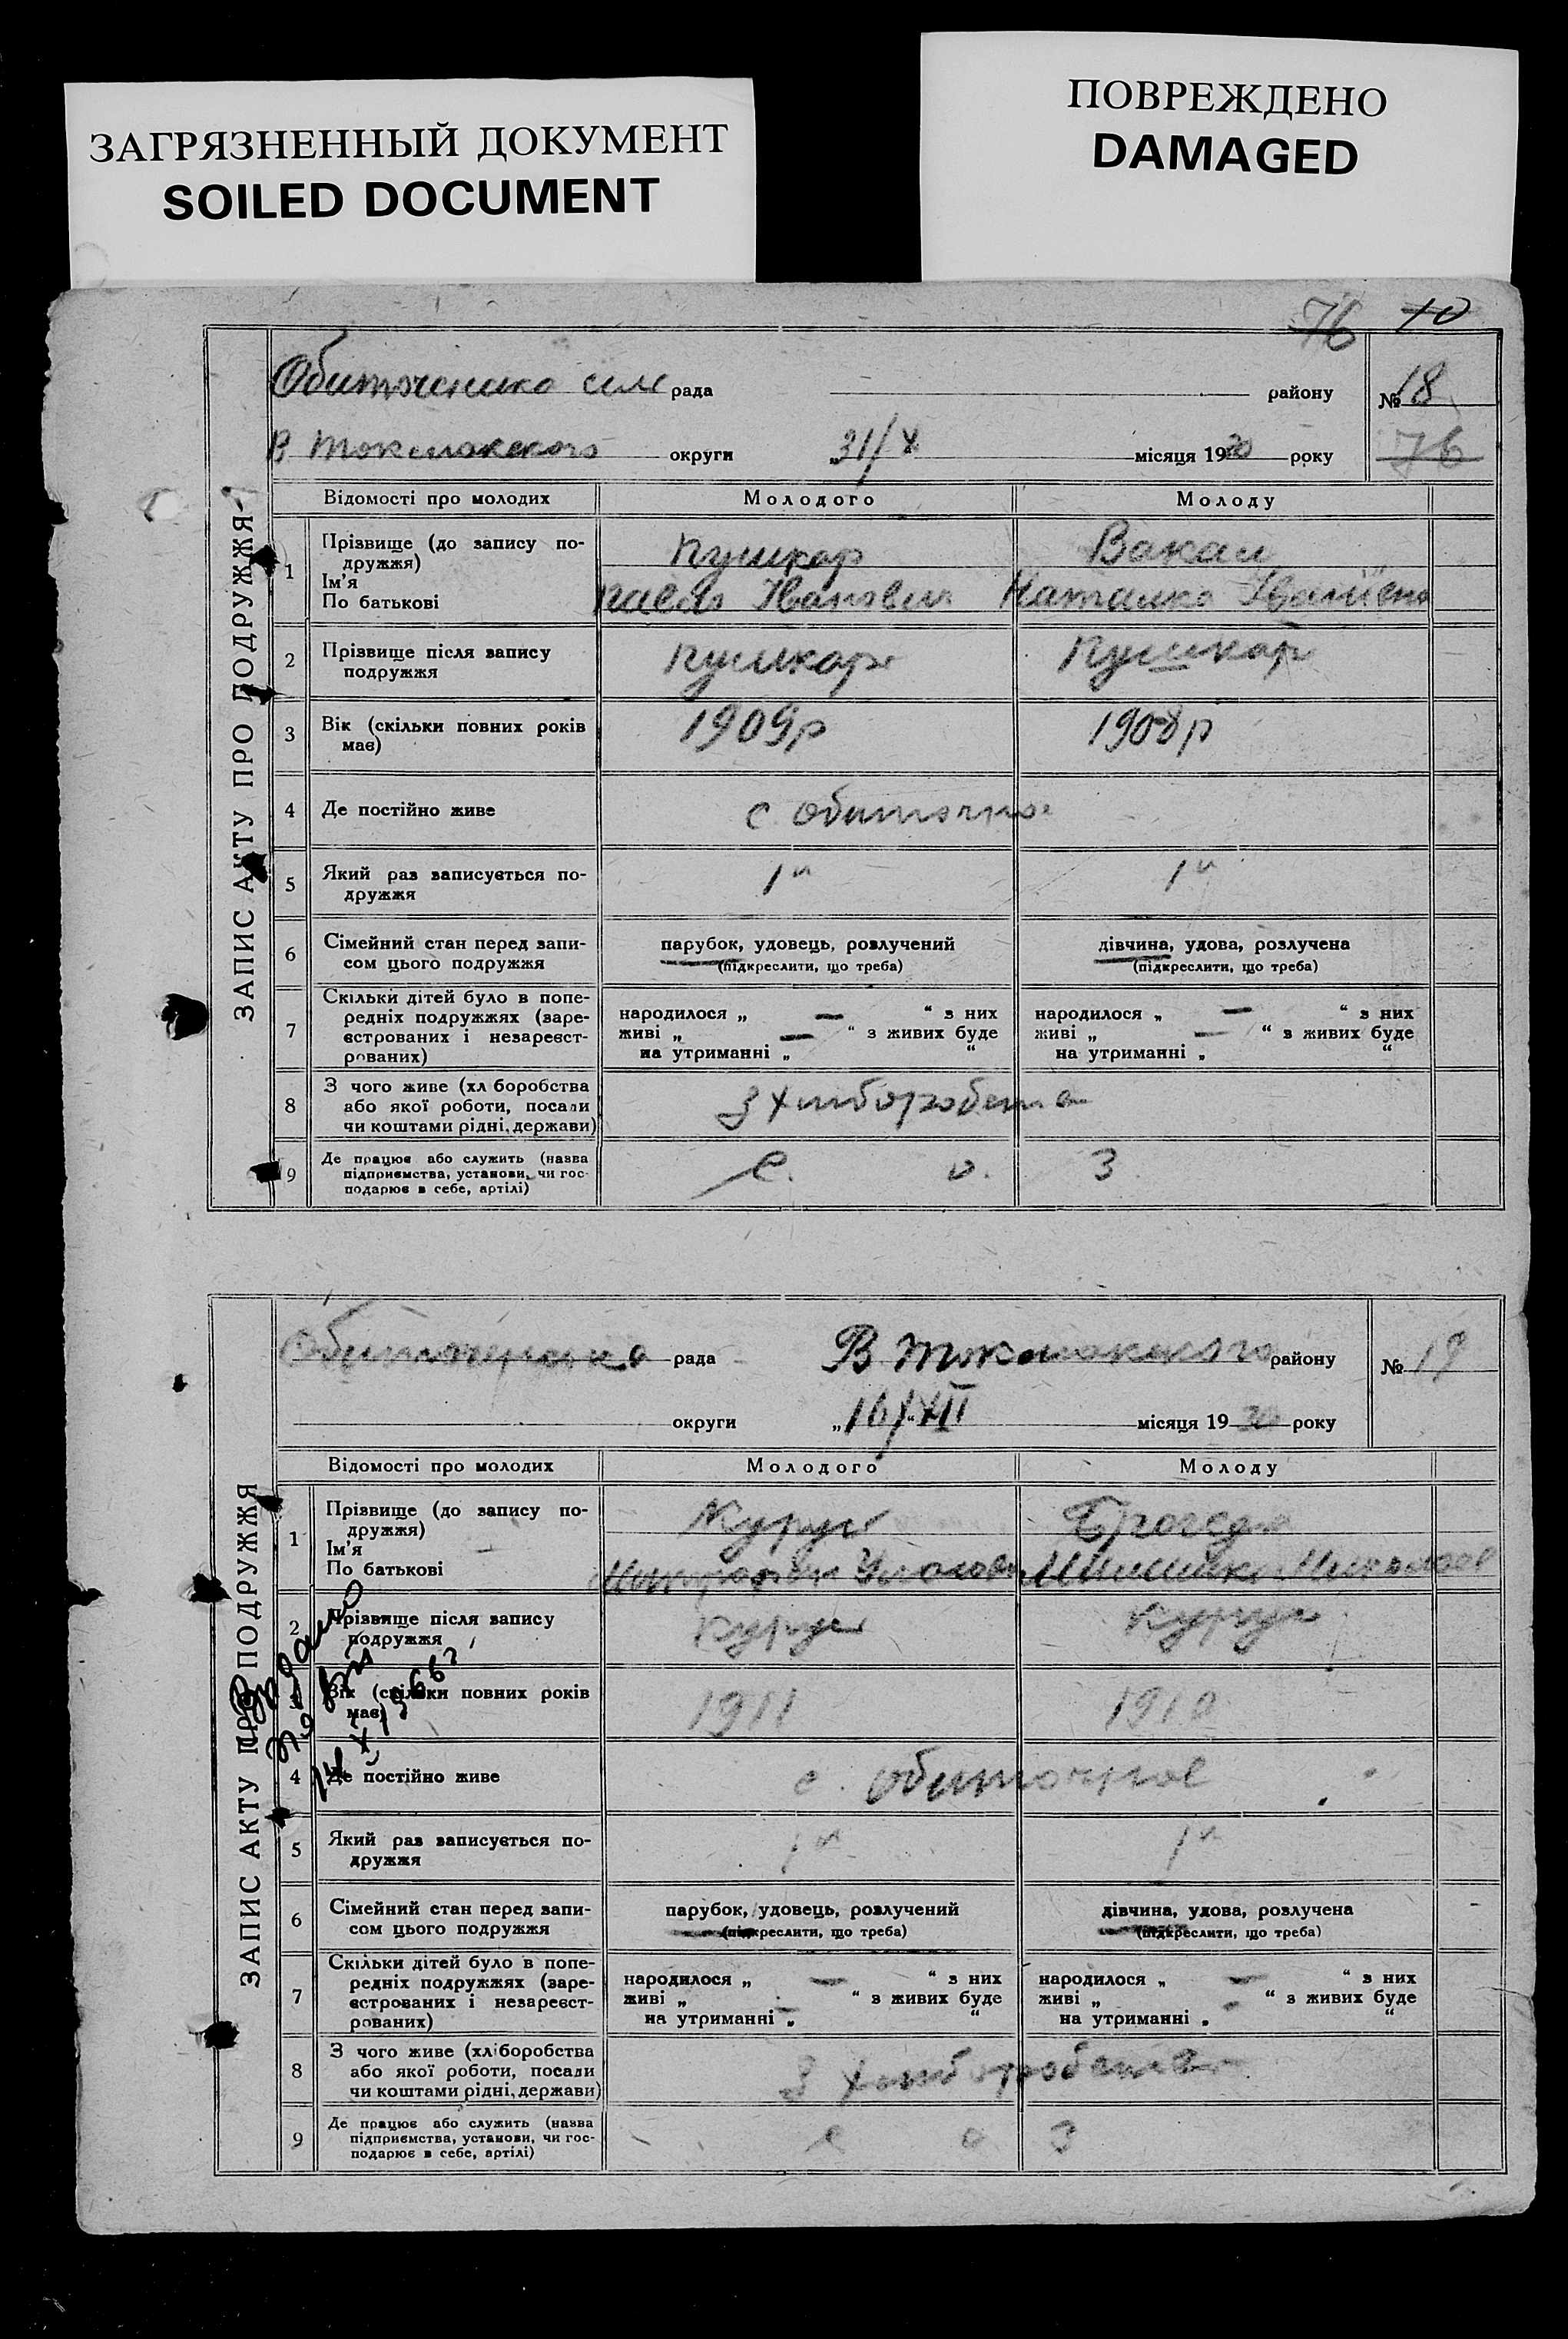 ЗАГРЯЗНЕННЫЙ ДОКУМЕНТ
SOILED DOCUMENT
ПОВРЕЖДЕНО
DAMAGED
76 10
ЗАПИС АКТУ ПРО ПОДРУЖЖЯ
рада району № 18
В Токмакского округи „31/X місяця 1930 року 76
Відомості про молодих Молодого Молоду
1 Прізвище (до запису по-
дружжя)
Ім'я
По батькові
Пушкар Вакал
Павло Іванович Наталка Іванівна
2 Прізвище після запису
подружжя
Пушкар Пушкар
3 Вік (скільки повних років
має)
1909р 1908р
4 Де постійно живе
с Обиточно
5 Який раз записується по-
дружжя
1й 1й
6 Сімейний стан перед запи-
сом цього подружжя
парубок, удовець, розлучений дівчина, удова, розлучена
(підкреслити, що треба) (підкреслити, що треба)
7 Скільки дітей було в попе-
редніх подружжях (заре-
єстрованих і незареєст-
рованих)
народилося „ — “ з них народилося „ — “ з них
живі „ — “ з живих буде живі „ — “ з живих буде
на утриманні „ “ на утриманні „ “
8 З чого живе (хл боробства
або якої роботи, посади
чи коштами рідні, держави)
З хліборобства
9 Де працює або служить (назва
підприємства, установи, чи гос-
подарює в себе, артілі)
С. О. З
ЗАПИС АКТУ ПРО ПОДРУЖЖЯ
рада В Токмакского району № 19
округи „16/XII місяця 1930 року
Відомості про молодих Молодого Молоду
1 Прізвище (до запису по-
дружжя)
Ім'я
По батькові
2 Прізвище після запису
подружжя
3 Вік (скільки повних років
має)
1911 1910
4 Де постійно живе
с. Обиточное
5 Який раз записується по-
дружжя
1й 1й
6 Сімейний стан перед запи-
сом цього подружжя
парубок, удовець, розлучений дівчина, удова, розлучена
(підкреслити, що треба) (підкреслити, що треба)
7 Скільки дітей було в попе-
редніх подружжях (заре-
єстрованих і незареєст-
рованих)
народилося „ — “ з них народилося „ — “ з них
живі „ “ з живих буде живі „ “ з живих буде
на утриманні „ “ на утриманні „ “
8 З чого живе (хліборобства
або якої роботи, посади
чи коштами рідні, держави)
З хліборобства
9 Де працює або служить (назва
підприємства, установи, чи гос-
подарює в себе, артілі)
С О З